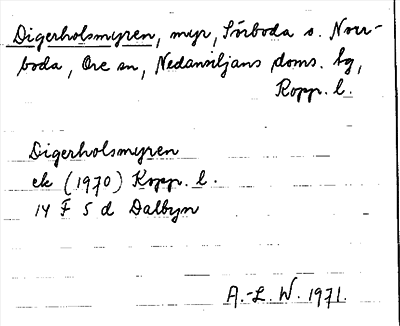 Digerholsmyren, myr, Sörboda o. Norr-
boda, Ore sn, Nedansiljans doms. tg,
Kopp. l.
Digerholsmyren
ek (1970) Kopp. l.
14 F 5 d Dalbyn
A.-L. W. 1971.